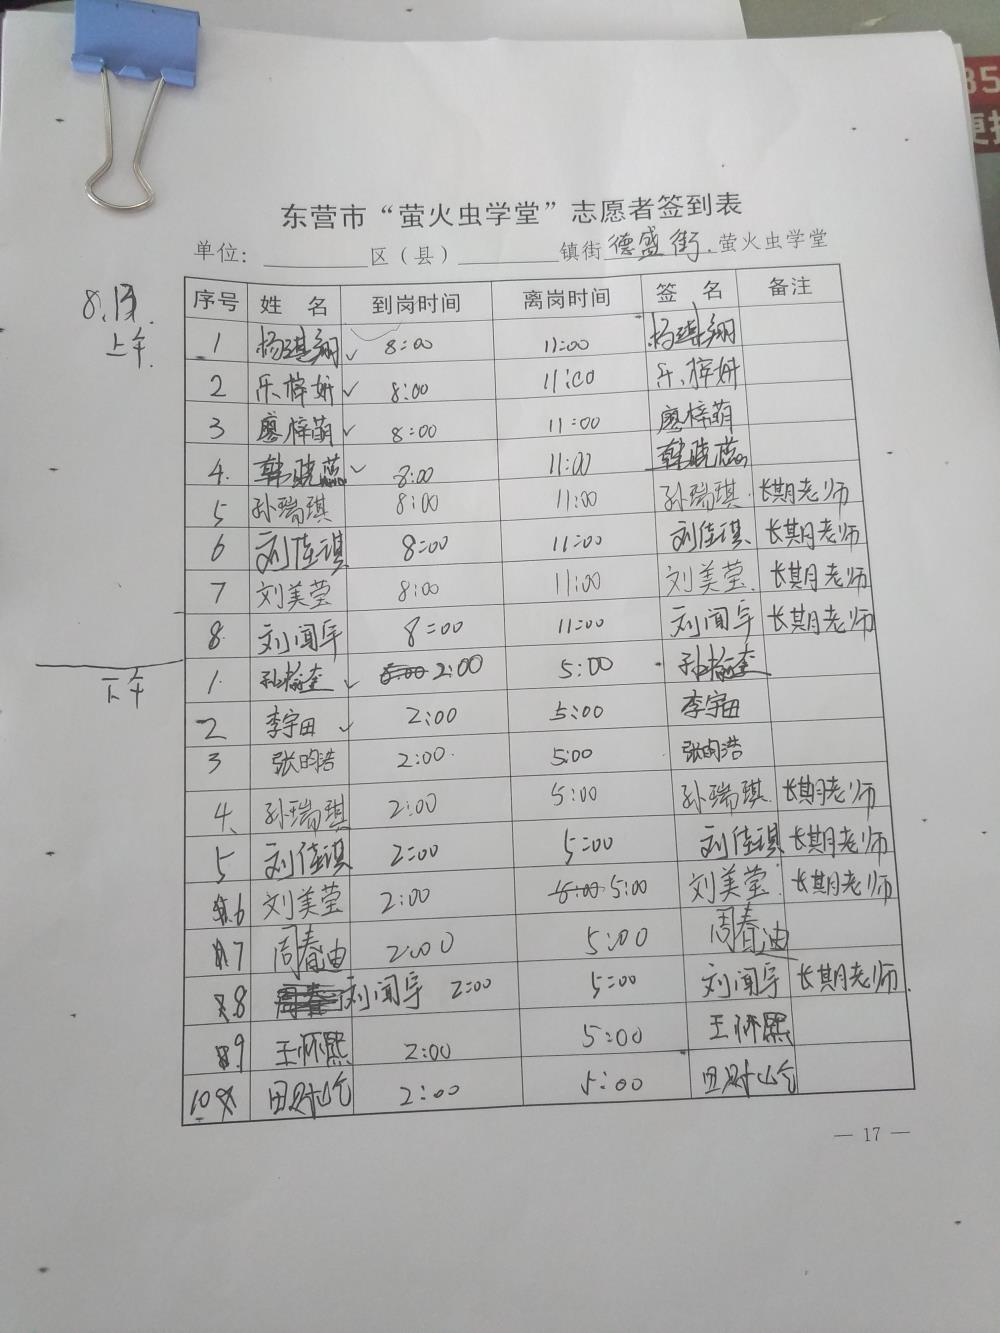 东营市“萤火虫学堂”志愿者签到表
单位：________区（县）________镇街 德盛街 萤火虫学堂
8.13
上午
序号 姓名 到岗时间 离岗时间 签名 备注
1 杨琪翔 8:00 11:00 杨琪翔
2 乐梓妍 8:00 11:00 乐梓妍
3 廖梓萌 8:00 11:00 廖梓萌
4. 韩晓蕊 8:00 11:00 韩晓蕊
5 孙瑞琪 8:00 11:00 孙瑞琪 长期老师
6 刘佳琪 8:00 11:00 刘佳琪 长期老师
7 刘美莹 8:00 11:00 刘美莹 长期老师
8. 刘闻宇 8:00 11:00 刘闻宇 长期老师
下午
1. 孙榆奎 2:00 5:00 孙榆奎
2 李宇田 2:00 5:00 李宇田
3 张昀浩 2:00 5:00 张昀浩
4、 孙瑞琪 2:00 5:00 孙瑞琪 长期老师
5 刘佳琪 2:00 5:00 刘佳琪 长期老师
6 刘美莹 2:00 5:00 刘美莹 长期老师
7 周春迪 2:00 5:00 周春迪
8 刘闻宇 2:00 5:00 刘闻宇 长期老师
9 王怀熙 2:00 5:00 王怀熙
10 田 2:00 5:00 田
— 17 —